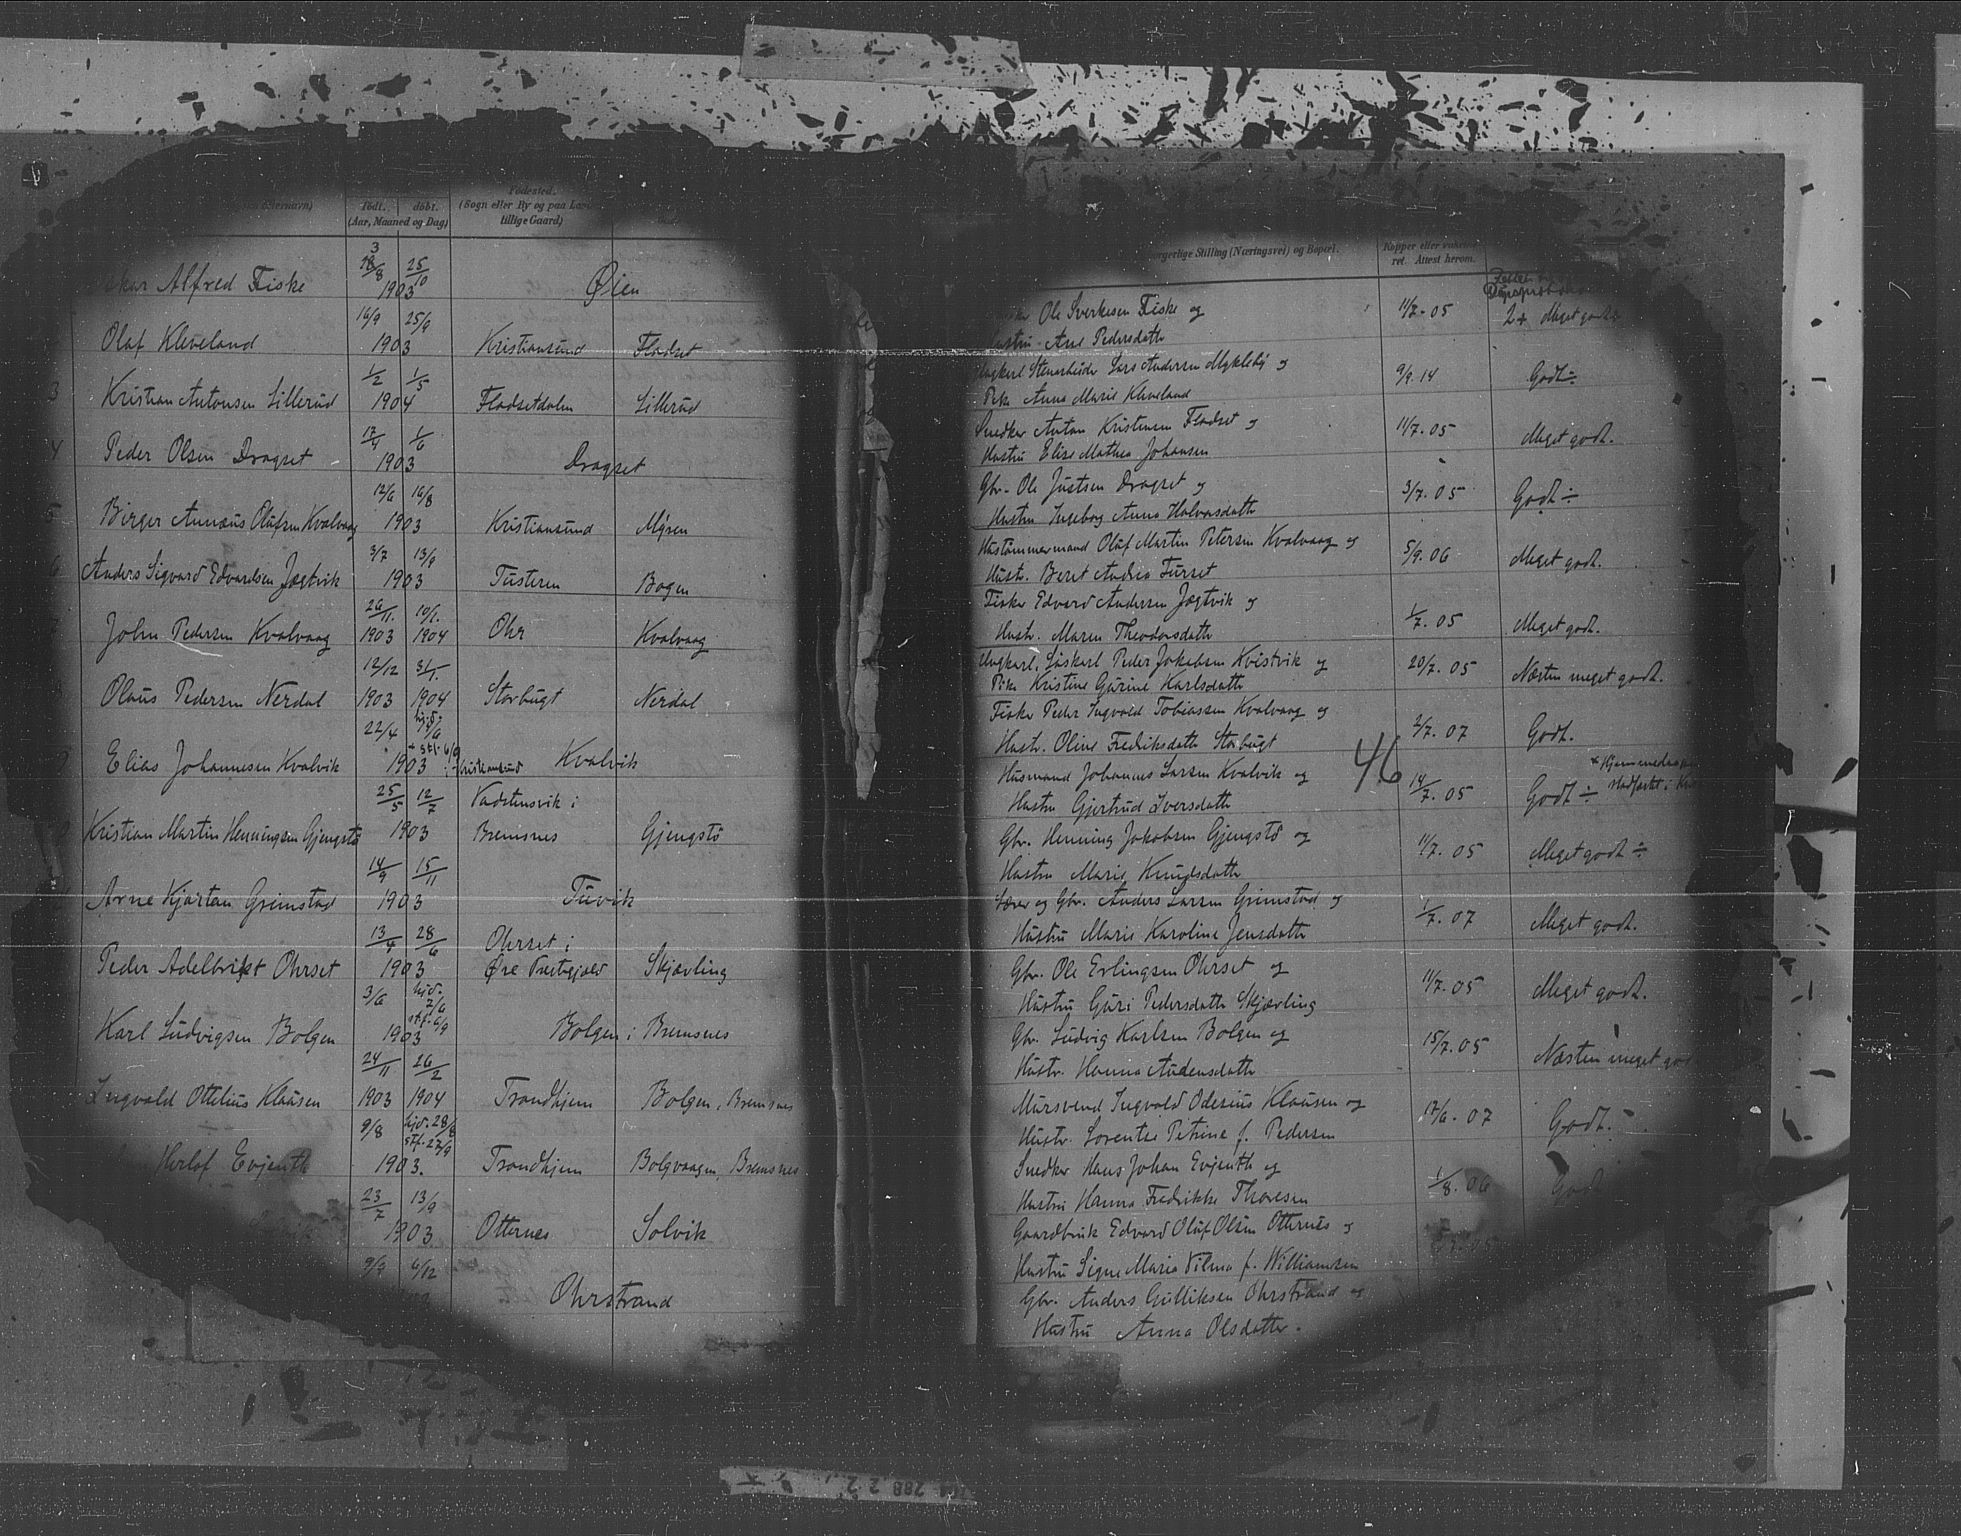 Födt. döbt.
(Aar, Maaned og Dag)
Födested.
(Sogn eller By og paa
tillige Gaard)
Alfred Fiske 3 18/8 25/10 1903 Øien
Olaf Kleveland 16/9 25/9 1903 Kristiansund Fladset
3 Kristian Antonsen Lillerud 1/2 1/5 1904 Fladsetdalen Lillerud
4 Peder Olsen Dragset 17/4 1/6 1903 Dragset
5 Birger Annæus Olufsen Kvalvaag 12/6 16/8 1903 Kristiansund Myren
6 Anders Sigvard Edvardsen Jægtvik 3/7 13/9 1903 Tusteren Bogen
John Pedersen Kvalvaag 26/11. 10/1. 1903 1904 Ohr Kvalvaag
Olaus Pedersen Nerdal 12/12 31/1. 1903 1904 Storbugt Nerdal
Elias Johannesen Kvalvik 22/4 hjd. stf. 6/9 1903 Kristiansund Kvalvik
Kristian Martin Henningsen Gjengstö 25/5 12/7 1903 Vadstensvik i Bremsnes Gjengstö
Arne Kjartan Grimstad 14/9 15/11 1903 Tuvik
Peder Adelbrikt Ohrset 13/4 28/6 1903 Ohrset i Øre Præstegjæld Skjævling
Karl Ludvigsen Bolgen 3/6 hjd. 7/6 stf. 6/9 1903 Bolgen i Bremsnes
Ingvald Ottelius Klausen 24/11 26/2 1903 1904 Trondhjem Bolgen, Bremsnes
Herlof Evjenth 9/8 hjd. 28/8 stf. 27/9 1903. Trondhjem Bolgvaagen, Bremsnes
23/7 13/9 1903 Otternes Solvik
9/9 6/12 Ohrstrand
borgerlige Stilling (Næringsvei) og Bopæl.
Kopper eller vakcine-
ret. Attest herom.
Ole Sverkesen Fiske og 11/7. 05 2+ Meget godt
Hustru Ane Pedersdatter
Ungkarl Stenarbeider Lars Andersen Myklebø og 9/9. 14 Godt ÷
Pike Anna Marie Kleveland
Snedker Anton Kristensen Fladset og 11/7. 05 Meget godt.
Hustru Elise Mathea Johansen
Gbr. Ole Justsen Dragset og 3/7. 05 Godt ÷
Hustru Ingeborg Anna Halvorsdatter
Hustömmermand Oluf Martin Petersen Kvalvaag og 5/9. 06 Meget godt.
Hustr. Beret Andrea Furset
Fisker Edvard Andersen Jægtvik og 1/7. 05 Meget godt.
Hustr. Maren Theodorsdatter
Ungkarl, Löskarl Peder Jakobsen Kvistvik og 20/7. 05 Næsten meget godt.
Pike Kristine Gurine Karlsdatter
Fisker Peder Ingvald Tobiassen Kvalvaag og 2/7. 07 Godt.
Hustr. Oline Fredriksdatter Storbugt
46
Husmand Johannes Larsen Kvalvik og 14/7. 05 Godt ÷
Hustru Gjertrud Iversdatter
Gbr. Henning Jakobsen Gjengstö og 11/7. 05 Meget godt ÷
Hustru Marie Knudsdatter
Lærer og Gbr. Anders Larsen Grimstad og 1/7. 07 Meget godt.
Hustru Marie Karoline Jensdatter
Gbr. Ole Erlingsen Ohrset og 11/7. 05 Meget godt.
Hustru Guri Pedersdatter Skjævling
Gbr. Ludvig Karlsen Bolgen og 15/7. 05 Næsten meget
Hustr. Hanna Audensdatter
Mursvend Ingvald Odesius Klausen og 17/6. 07 Godt. ÷
Hustr. Lorentse Petrine f. Pedersen
Snedker Hans Johan Evjenth og 1/8. 06
Hustru Hanna Fredrikke Thoresen
Gaardbruk. Edvard Oluf Olsen Otternes og
Hustru Signe Marie Vilma f. Williamsen
Gbr. Anders Gulliksen Ohrstrand og
Hustru Anna Olsdatter.